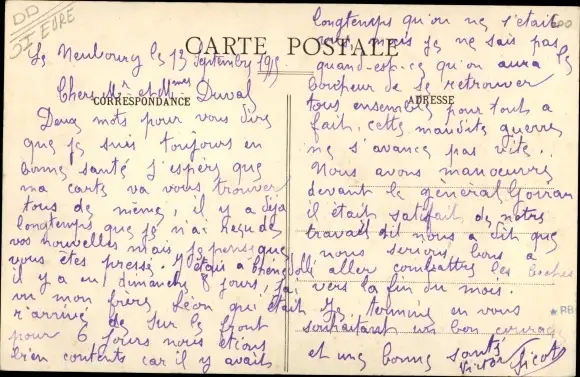 DD
27 EURE
600
CARTE POSTALE
CORRESPONDANCE
ADRESSE
Le Neubourg le 13 Septembre 1915
Chers Mr et Mmes Duval
Deux mots pour vous dire
que je suis toujours en
bonne santé J'espère que
ma carte va vous trouver
tous de même, il y a déjà
longtemps que je n'ai reçu de
vos nouvelles mais je pense que
vous êtes pressé. J'étais a
il y a eu dimanche 8 jours, j'ai
vu mon frère Léon qui était
r'arrivé de sur le front
pour 6 jours nous étions
bien contents car il y avait
longtemps qu'on ne s'était
vus, mais je ne sais pas
quand-esp-ce qu'on aura le
bonheur de se retrouver
tous ensembles pour tout a
fait, cette maudite guerre
ne s'avance pas vite.
Nous avons manoeuvré
devant le général
il était satisfait de notre
travail il nous a dit que
nous serions bons a
aller combattre les boches
vers la fin du mois.
Je termine en vous
souhaitant un bon courage
et une bonne santé
Victor
*RB